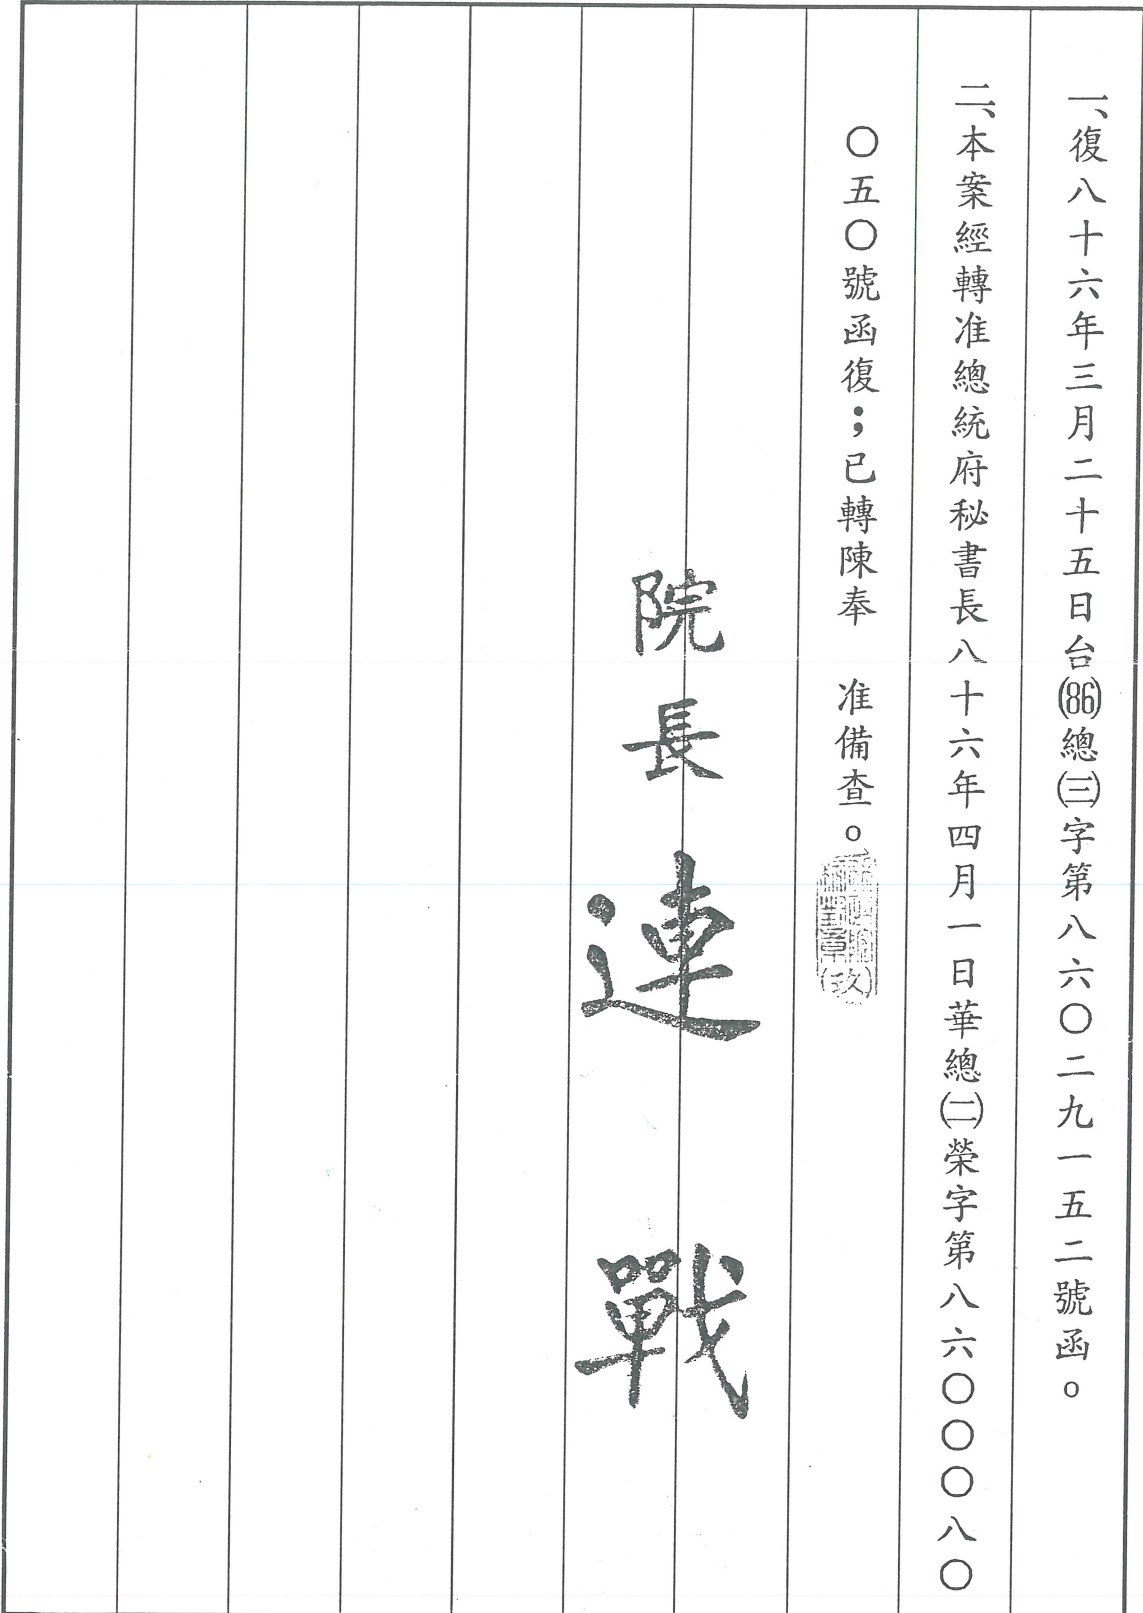 一、復八十六年三月二十五日台(86)總(三)字第八六〇二九一五二號函。
二、本案經轉准總統府秘書長八十六年四月一日華總(二)榮字第八六〇〇〇八〇
〇五〇號函復；已轉陳奉　准備查。
院長 連 戰